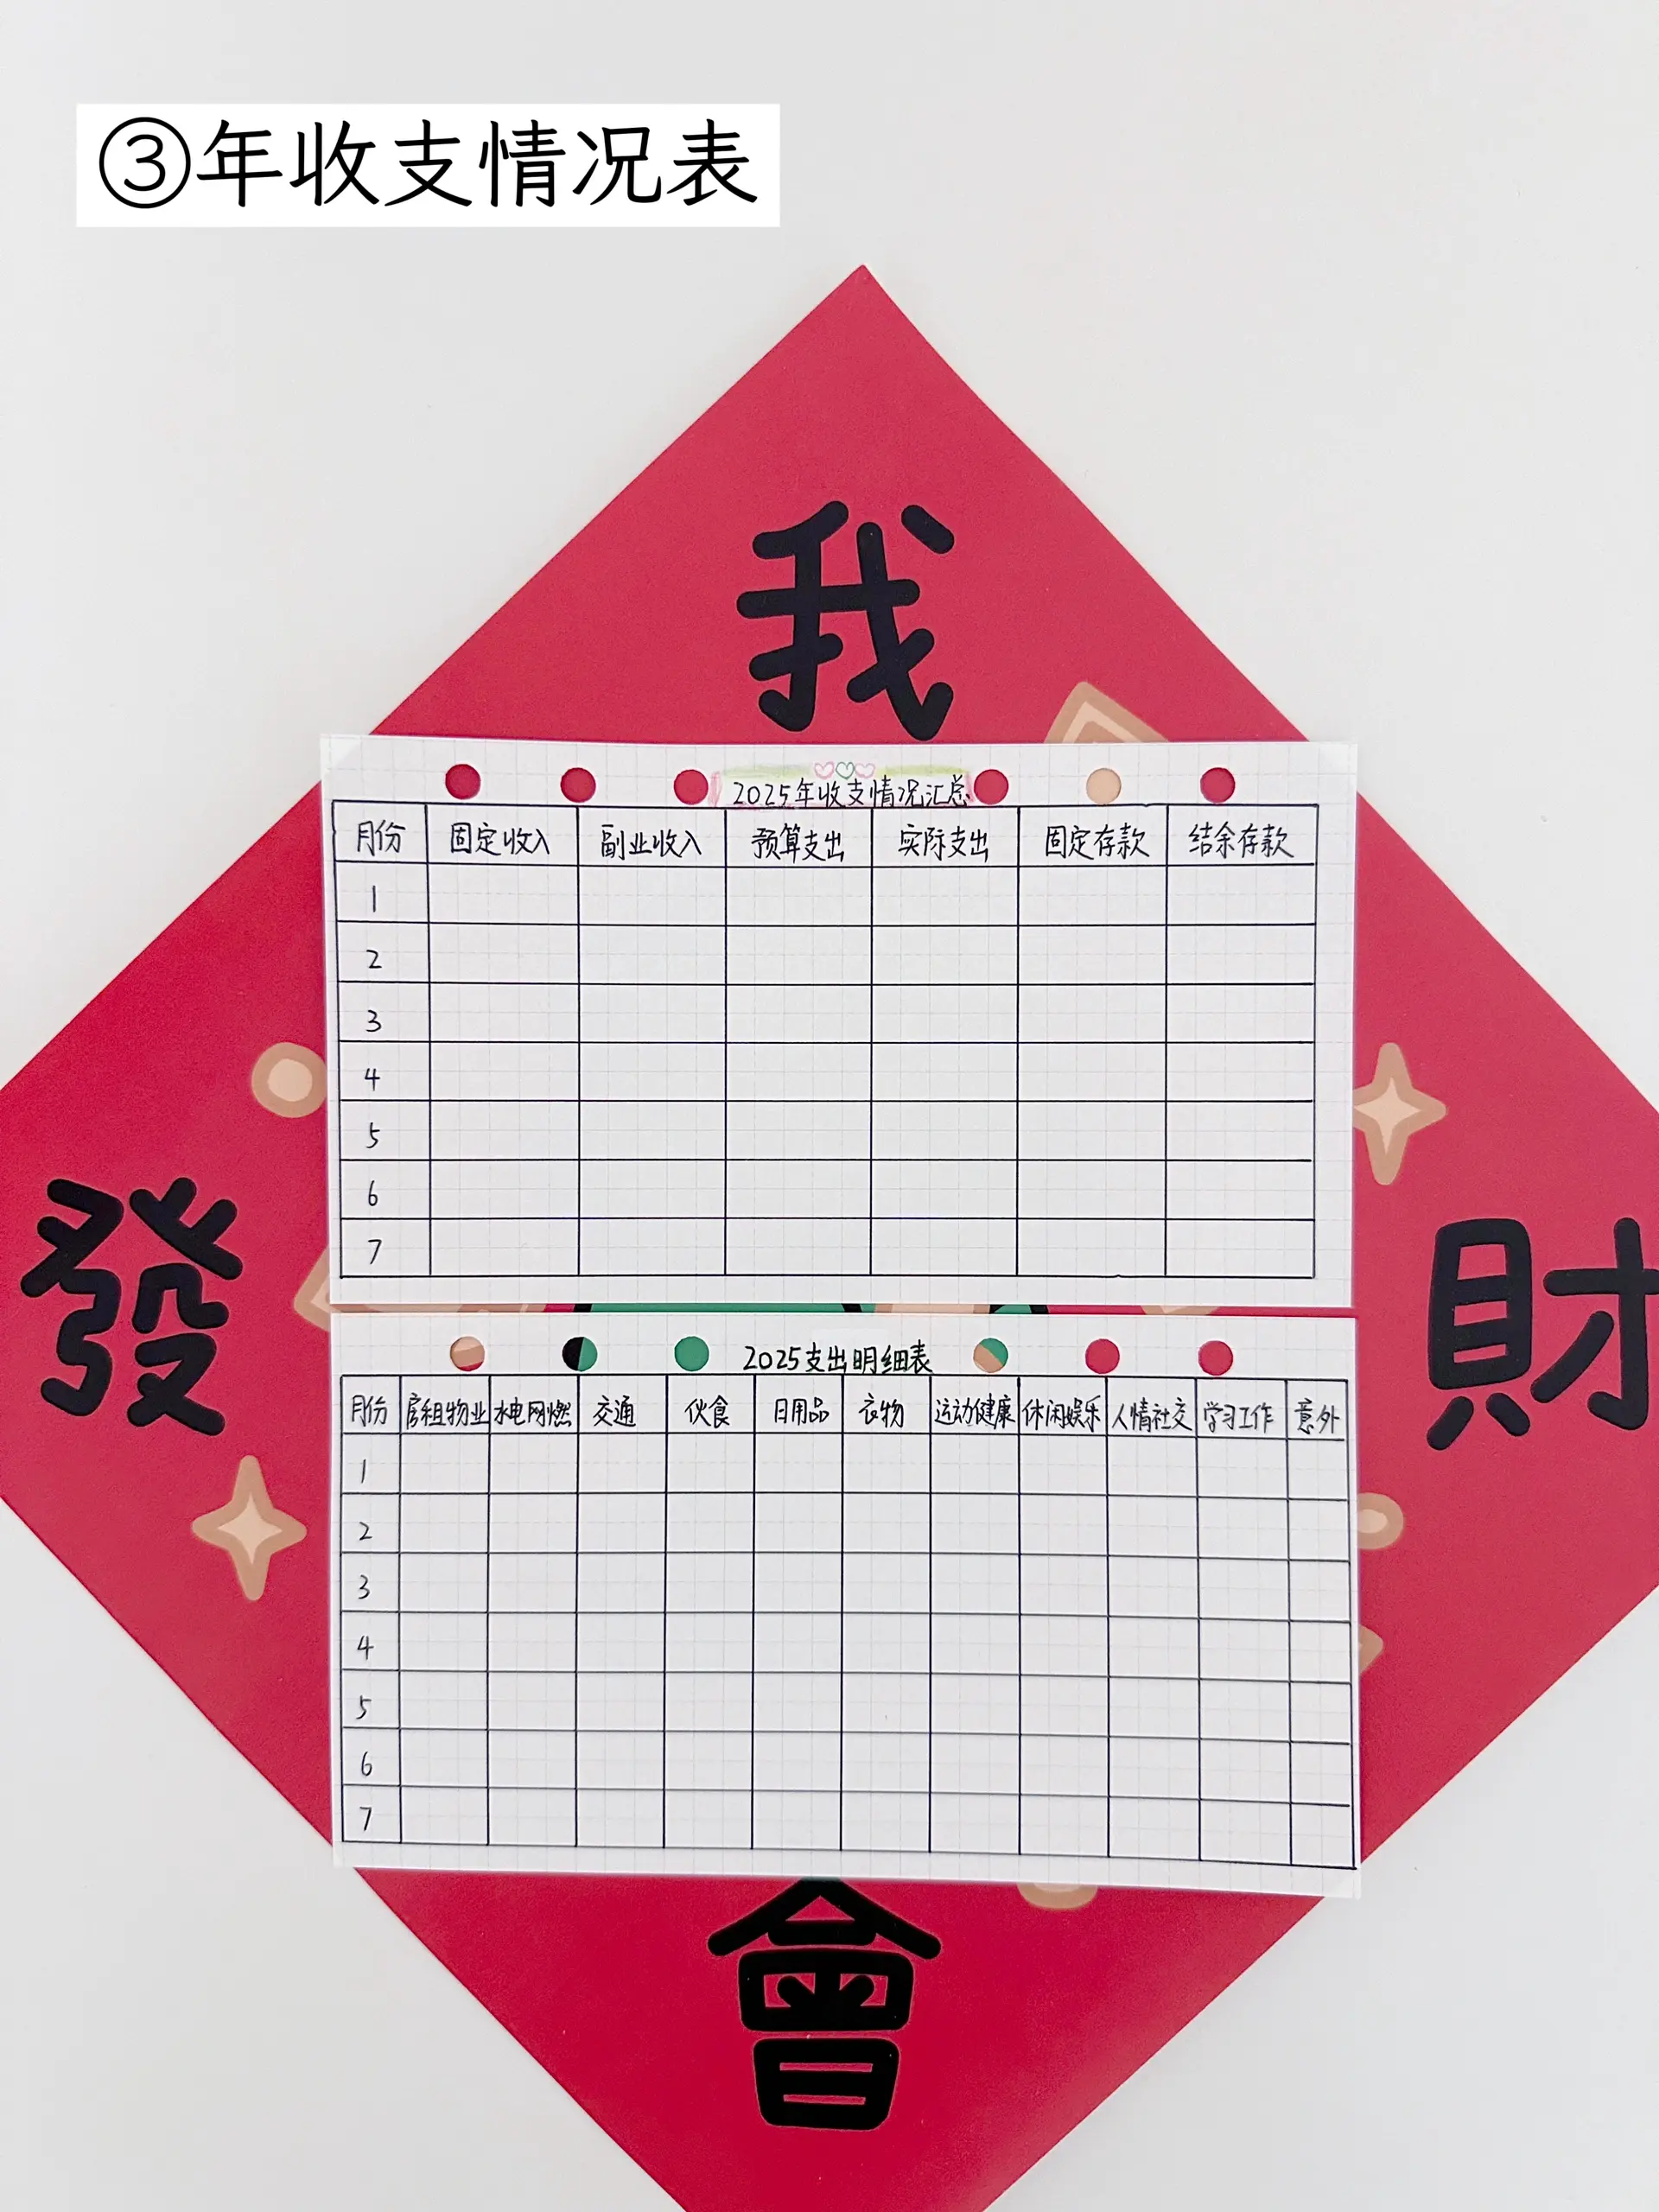 ③年收支情况表
我
2025年收支情况汇总
月份 固定收入 副业收入 预算支出 实际支出 固定存款 结余存款
1
2
3
4
5
6
7
發
財
2025支出明细表
月份 房租物业 水电网燃 交通 伙食 日用品 衣物 运动健康 休闲娱乐 人情社交 学习工作 意外
1
2
3
4
5
6
7
會